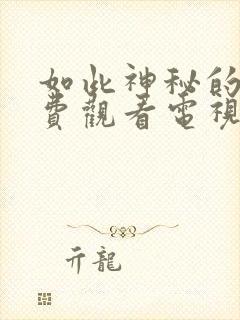 如此神秘的
費觀看電視
亓龍